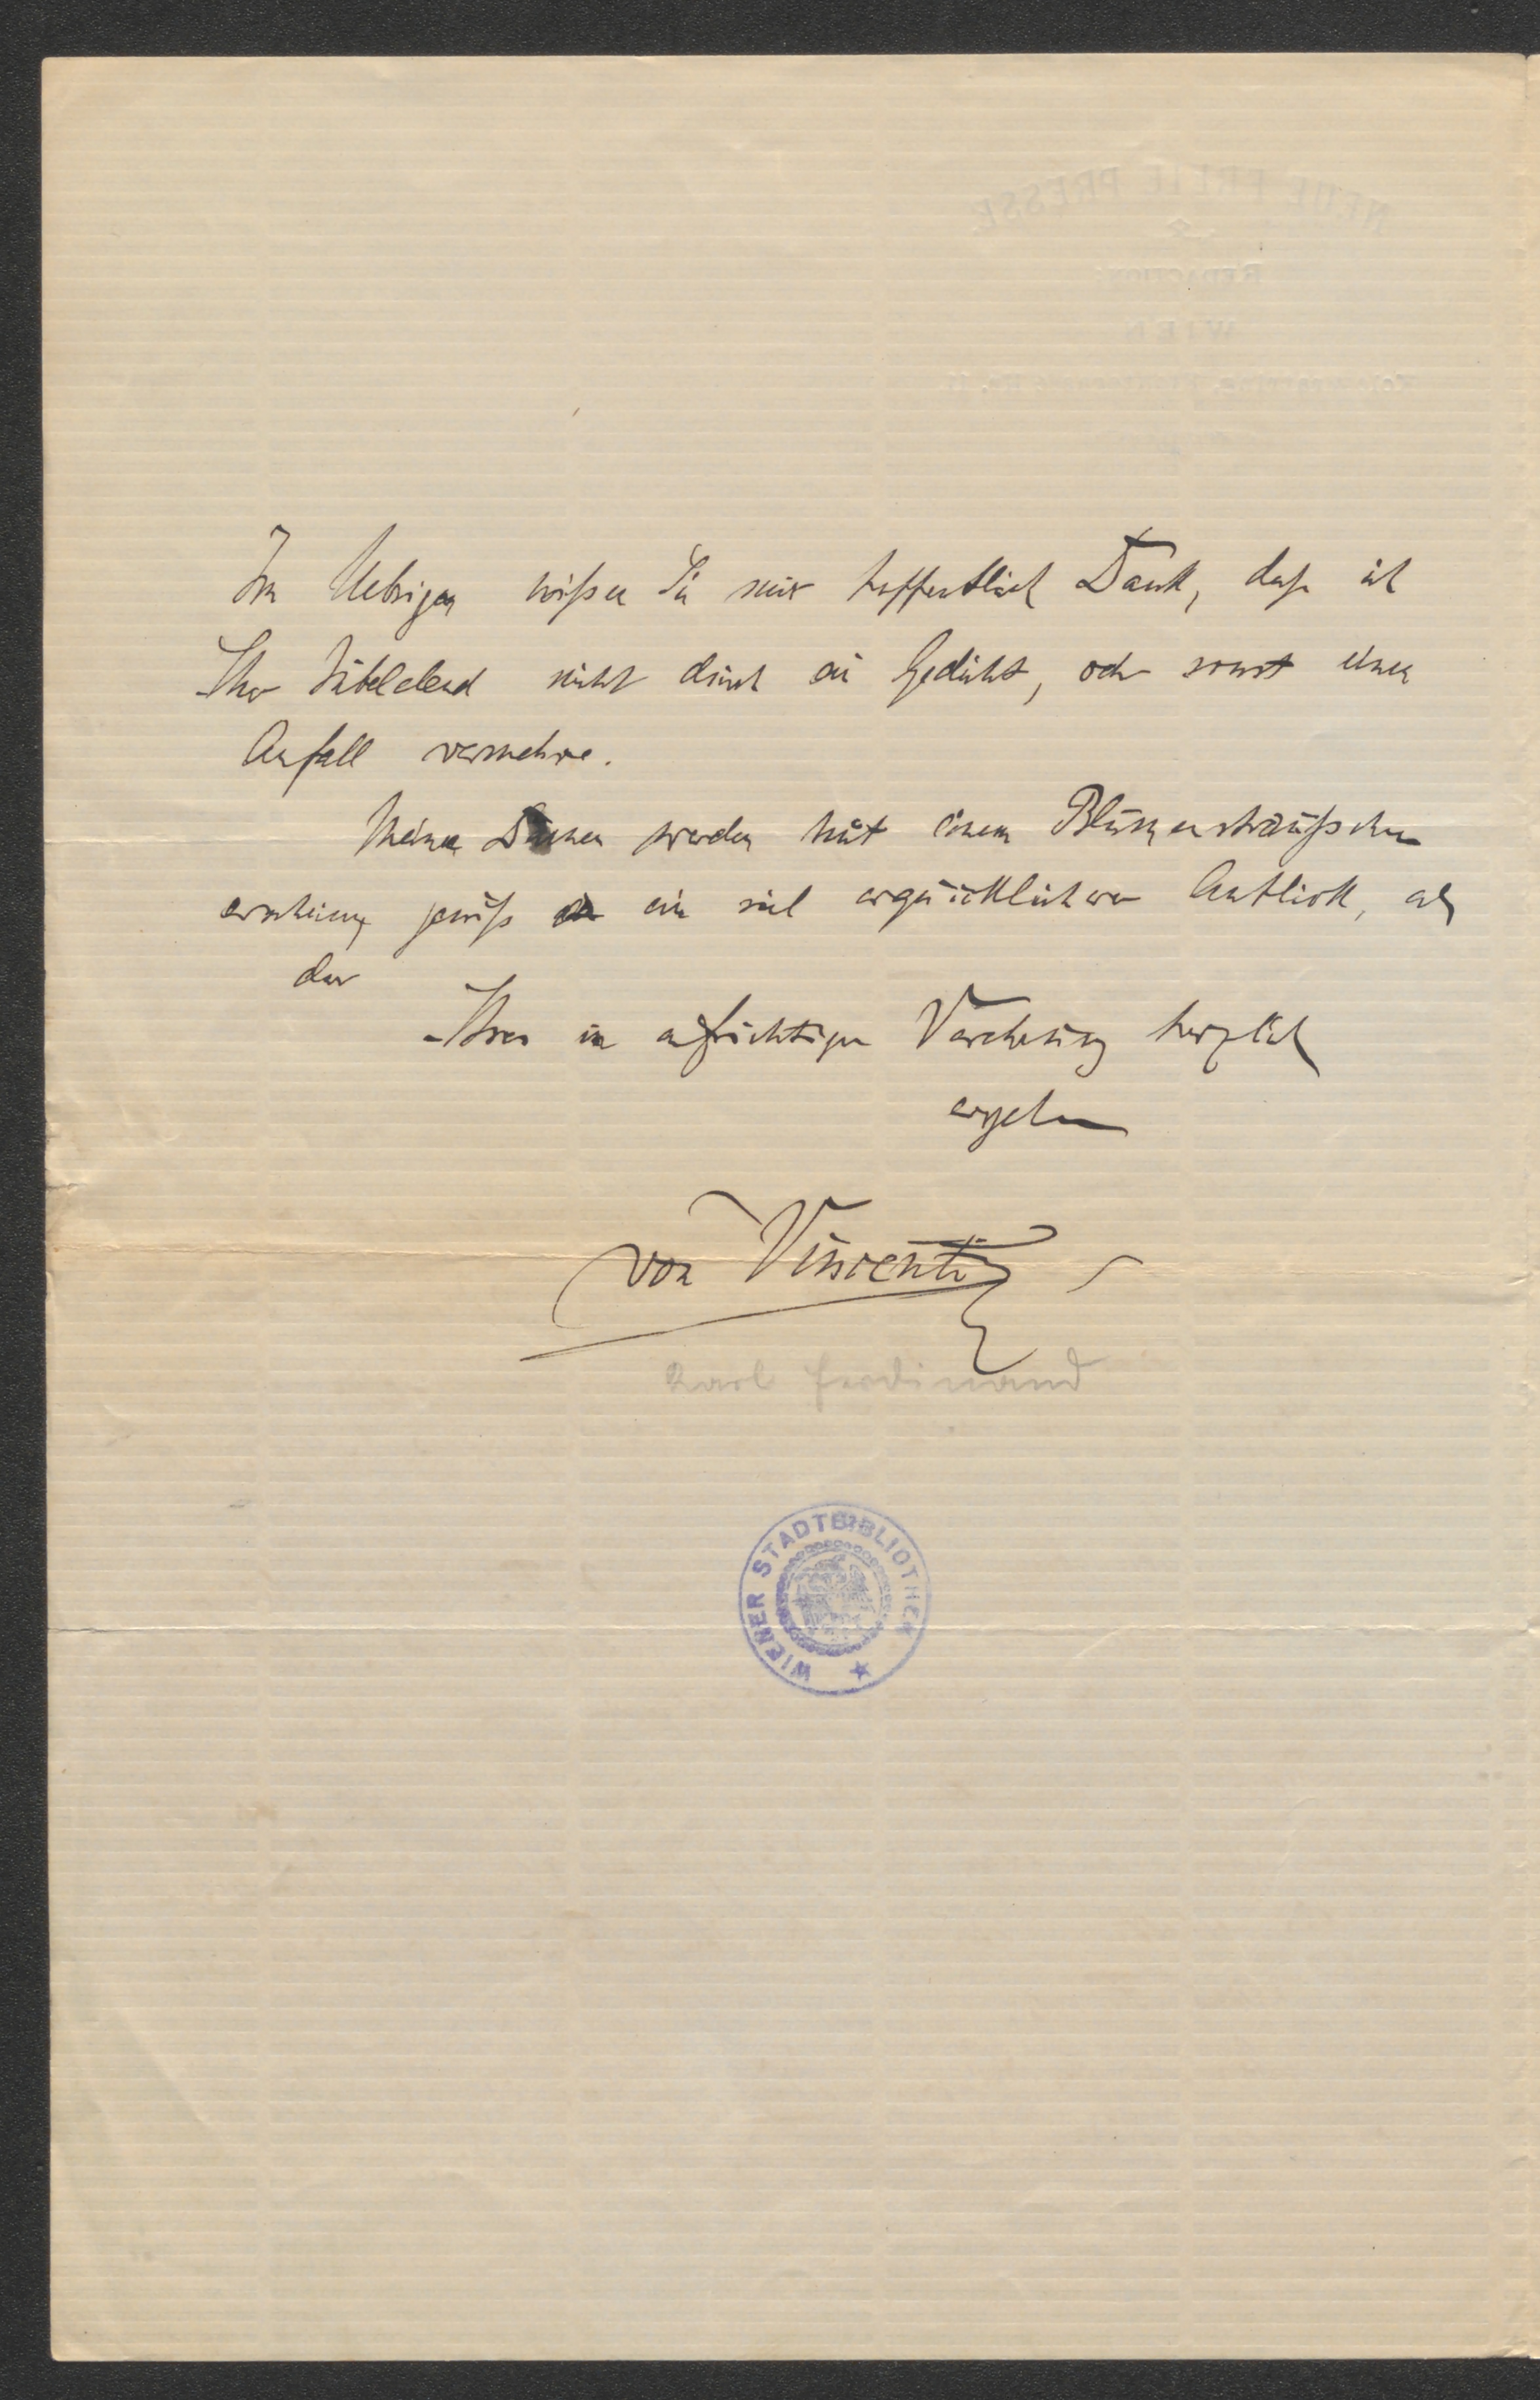 Im Uebrigen wißen Sie mir hoffentlich Dank, daß ich
Ihr Jubelelend nicht durch ein Gedicht, oder sonst einen
Anfall vermehre.
Meine Damen werden mit einem Blumensträußchen
erscheinen gewiß ein viel erquicklicherer Anblick, als
der
Ihres in aufrichtiger Verehrung herzlich
ergebenen
von Vincenti
Karl Ferdinand
WIENER STADTBIBLIOTHEK
NEUE FREIE PRESSE
REDACTION
WIEN